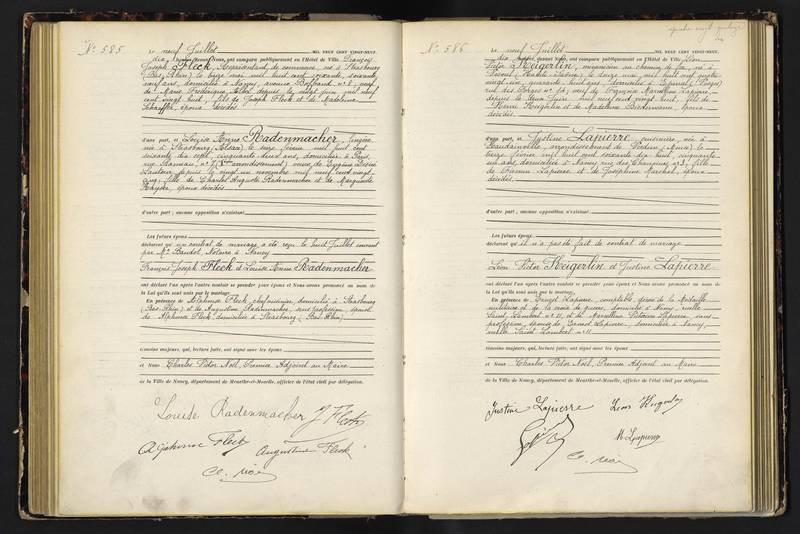 N° 585
Le neuf Juillet MIL NEUF CENT VINGT-NEUF.
dix heures devant Nous, ont comparu publiquement en l'Hôtel de Ville François
Joseph Fleck, Représentant de commerce, né à Strasbourg
(Bas-Rhin) le seize mai mil huit cent soixante, soixante
neuf ans, domicilié à Nancy, avenue Boffrand n° 8, veuf
de Marie Frédérique depuis le vingt juin mil neuf
cent vingt huit, fils de Joseph Fleck et de Madeleine
Schaeffer, époux décédés
d'une part, et Louise Anne Radenmacher, lingère,
née à Strasbourg (Alsace) le seize février mil huit cent
soixante dix sept, cinquante deux ans, domiciliée à Paris,
rue Rameau n° 7 (arrondissement) veuve de Eugène Désiré
depuis le vingt un novembre mil neuf cent vingt
cinq, fille de Charles Auguste Radenmacher et de Marguerite
époux décédés
d'autre part ; aucune opposition n'existant
Les futurs époux
déclarent qu'un contrat de mariage a été reçu le huit Juillet courant
par Me Baudot, Notaire à Nancy
François Joseph Fleck et Louise Anne Radenmacher
ont déclaré l'un après l'autre vouloir se prendre pour époux et Nous avons prononcé au nom de
la Loi qu'ils sont unis par le mariage.
En présence de Alphonse Fleck, chef domicilié à Strasbourg
(Bas-Rhin) et de Augustine Radenmacher, sans profession, épouse
de Alphonse Fleck, domiciliée à Strasbourg (Bas-Rhin)
témoins majeurs, qui, lecture faite, ont signé avec les époux
et Nous Charles Victor Noël, Premier Adjoint au Maire
de la Ville de Nancy, département de Meurthe-et-Moselle, officier de l'état civil par délégation.
Louise Radenmacher J Fleck
Alphonse Fleck Augustine Fleck
N° 586
Le neuf Juillet MIL NEUF CENT VINGT-NEUF.
dix heures devant Nous, ont comparu publiquement en l'Hôtel de Ville Léon
Victor Heigerlin, mécanicien au chemin de fer, né à
(Haute-Saône) le onze mai mil huit cent quatre
vingt un, quarante huit ans, domicilié à Epinal (Vosges)
rue des Forges n° veuf de Lapierre
depuis le mil neuf cent vingt huit, fils de
Heigerlin et de Madeleine époux
décédés
d'une part, et Justine Lapierre, cuisinière, née à
arrondissement de Verdun (Meuse) le
treize février mil huit cent soixante dix huit, cinquante
un ans, domiciliée à Nancy, rue des n° 3, fille
de Firmin Lapierre et de Joséphine Marchal, époux
décédés
d'autre part ; aucune opposition n'existant
Les futurs époux
déclarent qu'il n'a pas été fait de contrat de mariage
Léon Victor Heigerlin et Justine Lapierre
ont déclaré l'un après l'autre vouloir se prendre pour époux et Nous avons prononcé au nom de
la Loi qu'ils sont unis par le mariage.
En présence de Ernest Lapierre, comptable, décoré de la Médaille
militaire et de la croix de guerre, domicilié à Nancy, ruelle
Saint Lambert n° 11, et de Marcelline Lapierre, sans
profession, épouse de Ernest Lapierre, domiciliée à Nancy,
ruelle Saint Lambert n° 11
témoins majeurs, qui, lecture faite, ont signé avec les époux
et Nous Charles Victor Noël, Premier Adjoint au Maire
de la Ville de Nancy, département de Meurthe-et-Moselle, officier de l'état civil par délégation.
Justine Lapierre Léon
M Lapierre